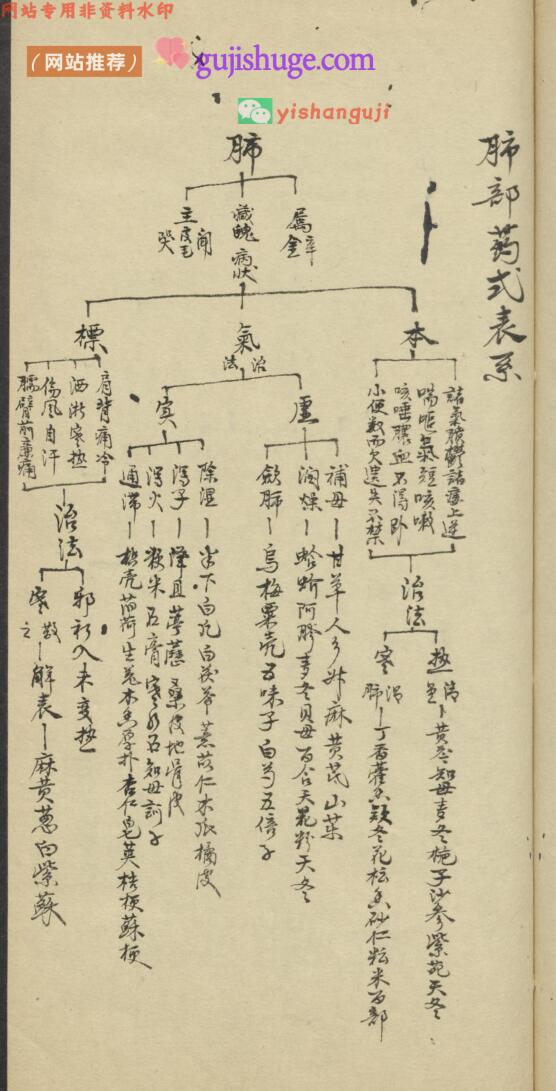 网站专用非资料水印
(网站推荐)
gujishuge.com
yishanguji
肺部药式表系
肺
属辛
金
藏魄
主皮毛闻
病状
本
諸氣膹鬱諸痿上逆
喘嘔氣短咳嗽
咳唾膿血不得卧
小便数而欠遺失不禁
治法
热
清
黄芩知母麦冬栀子沙參紫苑天冬
寒
温
肺
丁香藿香欵冬花枟香砂仁粘米百部
氣
治法
虛
補母
甘草人參升麻黄芪山菜
潤燥
蛤蚧阿膠麦冬貝母百合天花粉天冬
斂肺
烏梅粟壳五味子白芍五倍子
实
除湿
半下白凡白茯苓薏苡仁木瓜橘皮
瀉子
澤且葶藶桑皮地骨皮
瀉火
粳米石膏寒水石知母訶子
通滞
枳壳薄荷生姜木香厚朴杏仁皂荚桔梗蘇梗
標
肩背痛冷
洒淅寒热
傷風自汗
臑臂前廉痛
治法
邪初入未变热
寒
散之
解表
麻黄葱白紫蘇